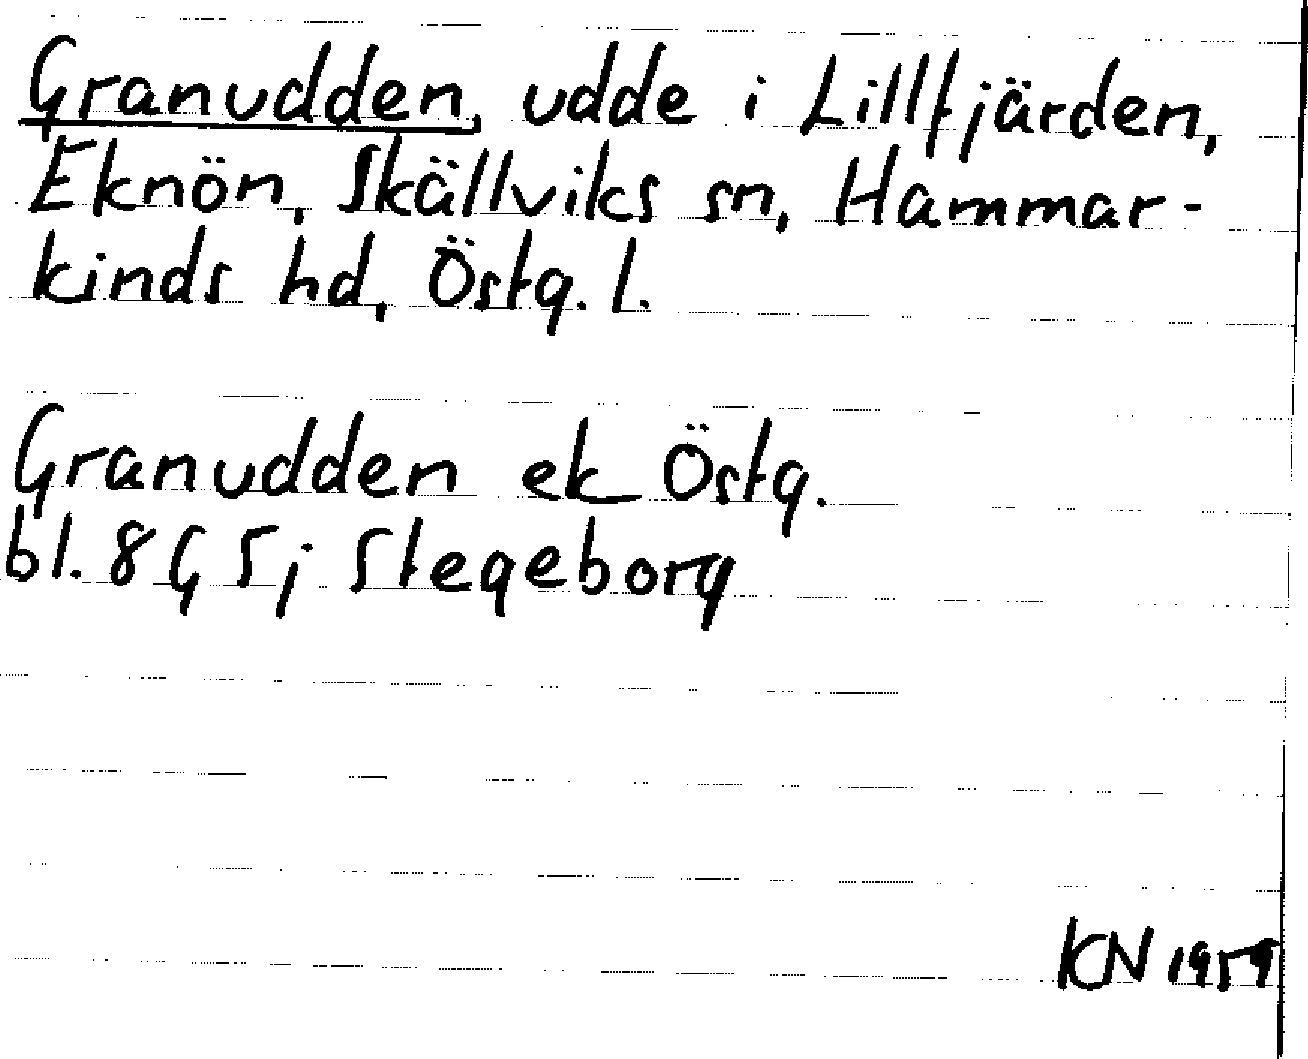 Granudden, udde i Lillfjärden,
Eknön, Skällviks sn, Hammar-
kinds hd, Östg. l.
Granudden ek Östg.
bl. 8G 5j Stegeborg
KN 1959